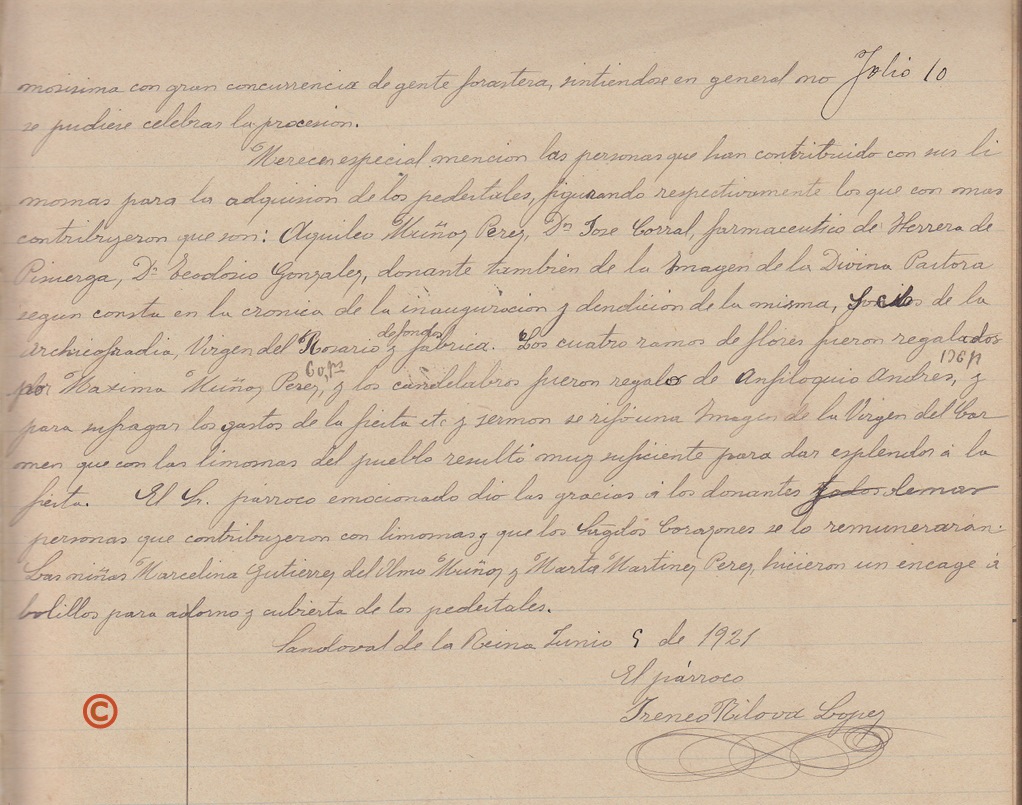 mosisima con gran concurrencia de gente forastera, sintiendose en general no Jolio 10
se pudiese celebrar la procesion.
Merecen especial mencion las personas que han contribuido con sus li
momas para la adquision de los pedestales, figurando respectivamente los que con mas
contribuyeron que son: Aquileo Muñoz Perez, Dn Jose Corral, farmaceutico de Herrera de
Pisuerga, Dn Teodosio Gonzalez, donante también de la Imagen de la Divina Pastora
segun consta en la cronica de la inauguracion y dendición de la misma, de la
de fondos
Archicofradia, Virgen del Rosario y fabrica. Los cuatro ramos de flores fueron regalados
60 pts 176 p
por Maxima Muñoz Perez, y los candelabros fueron regalos de Anfiloquio Andres, y
para sufragar los gastos de la fiesta etc y sermon se rifo una Imagen de la Virgen del Car
men que con las limomas del pueblo resultó muy suficiente para dar esplendor á la
fiesta. El Sr. párroco emocionado dio las gracias á los donantes todos demas
personas que contribuyeron con limomas y que los Sagdos Corazones se lo remuneraran.
Las niñas Marcelina Gutierrez del Olmo Muñoz y Marta Martinez Perez, hicieron un encage á
bolillos para adorno y cubierta de los pedestales.
Sandoval de la Reina Junio 9 de 1921
El párroco
Ireneo Rilova Lopez
©